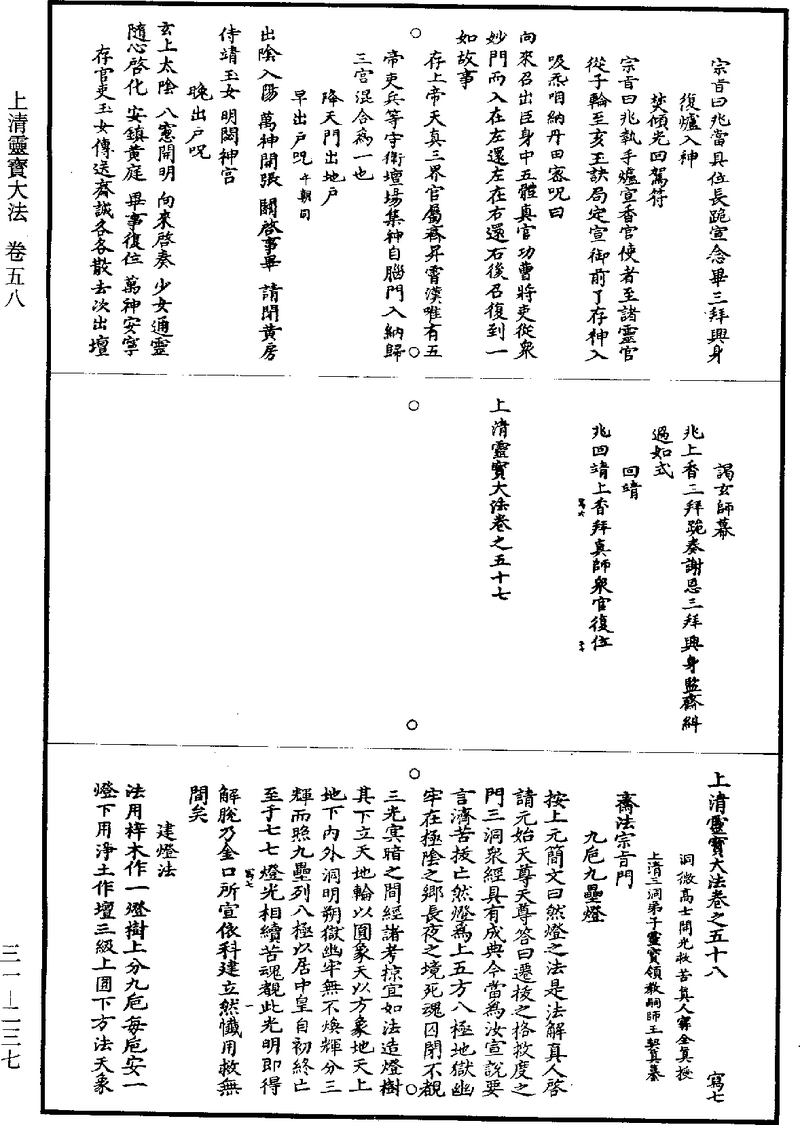 上清靈寶大法　卷五八
宗旨曰兆當具位長跪宣念畢三拜興身
復爐入神
焚傾光回駕符
宗旨曰兆執手爐宣香官使者至諸靈官
從子輪至亥玉訣局定宣御前了存神入
吸炁咽納丹田密呪曰
向來召出臣身中五體真官功曹將吏從衆
妙門而入在左還左在右還右後召復到一
如故事
存上帝天真三界官屬齋昇霄漢唯有五
帝吏兵等守衛壇場集神自腦門入納歸
三宮混合為一也
降天門出地戶
早出戶呪午朝同
出陰入陽萬神開張關啓事畢請閉黃房
侍靖玉女明閤神宮
晚出戶呪
玄上太陰八窻開明向來啓奏少女通靈
隨心啓化安鎮黃庭畢事復位萬神安寧
存官吏玉女傳送齋誠各各散去次出壇
謁玄師幕
兆上香三拜跪奏謝恩三拜興身監齋糾
過如式
回靖
兆回靖上香拜真師衆官復位
上清靈寶大法卷之五十七
上清靈寶大法卷之五十八　寫七
洞微高士開光救苦真人甯全真授
上清三洞弟子靈寶領教嗣師王契真纂
齋法宗旨門
九巵九壘燈
按上元簡文曰然燈之法是法解真人啓
請元始天尊天尊答曰遷拔之格救度之
門三洞衆經具有成典今當為汝宣說要
言濟苦拔亡然燈為上五方八極地獄幽
牢在極陰之鄉長夜之境死魂囚閉不覩
三光冥暗之間經諸考掠宜如法造燈樹
其下立天地輪以圓象天以方象地天上
地下內外洞明朔獄幽牢無不煥輝分三
輝而照九壘列八極以居中皇自初終亡
至于七七燈光相續苦魂覩此光明即得
解脫乃金口所宣依科建立然懺用救無
間矣
建燈法
法用梓木作一燈樹上分九巵每巵安一
燈下用淨土作壇三級上圓下方法天象
三一—二三七